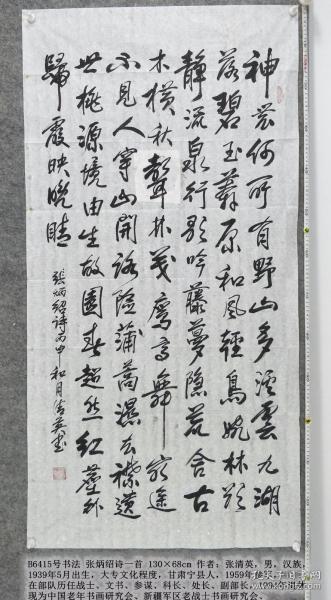 神岩何所有野山多溪云九湖
落碧玉葬原和风轻鸟婉林欲
静流泉行歌吟藤萝隐荒舍古
木横秋声林茂鸾鸟舞穷途
不见人穿山开路险蒲蒿湿衣襟遗
世桃源境由生故园春超然红尘外
归霞映晚晴
张炳绍诗丙申和月清英书
B6415号书法 张炳绍诗一首 130×68cm 作者：张清英，男，汉族，
1939年5月出生，大专文化程度，甘肃宁县人，1959年
在部队历任战士、文书、参谋、科长、处长、副部长，
现为中国老年书画研究会、新疆军区老战士书画研究会